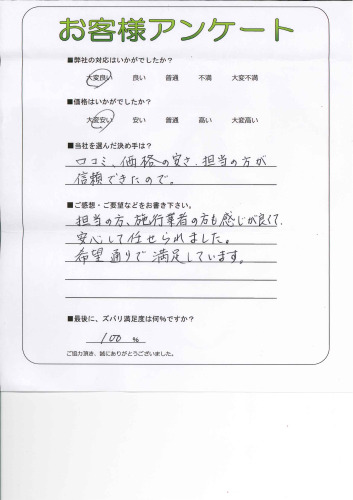 お客様アンケート
■弊社の対応はいかがでしたか？
大変良い 良い 普通 不満 大変不満
■価格はいかがでしたか？
大変安い 安い 普通 高い 大変高い
■当社を選んだ決め手は？
口コミ、価格の安さ、担当の方が
信頼できたので。
■ご感想・ご要望などをお書き下さい。
担当の方、施行業者の方も感じが良くて、
安心して任せられました。
希望通りで満足しています。
■最後に、ズバリ満足度は何%ですか？
100 %
ご協力頂き、誠にありがとうございました。